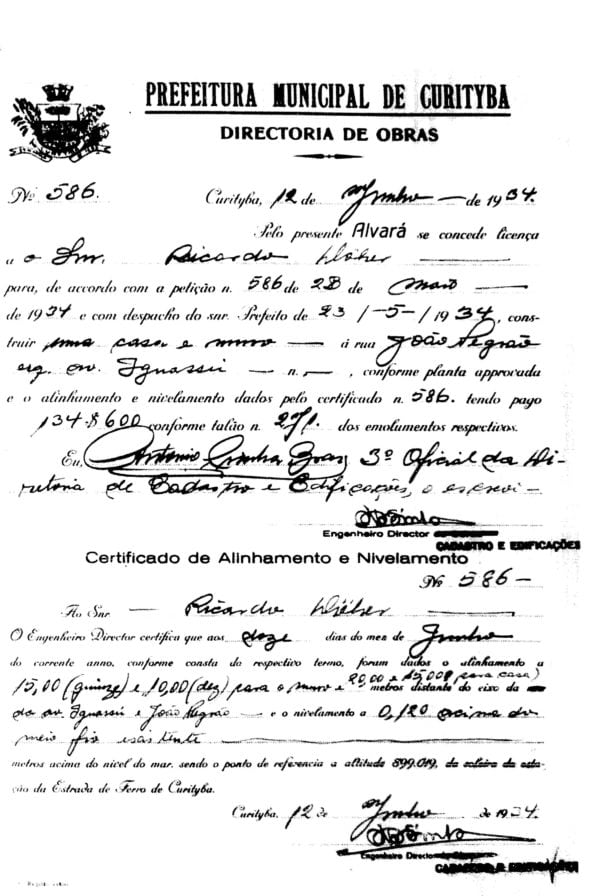 PREFEITURA MUNICIPAL DE CURITYBA
DIRECTORIA DE OBRAS
Nº 586. Curityba, 12 de Junho de 1934.
Pelo presente Alvará se concede licença
a o Snr. Ricardo
para, de accordo com a petição n. 586 de 28 de Maio
de 1934 e com despacho do snr. Prefeito de 23/-5-/1934, cons-
truir uma casa e muro á rua João Negrão
esq. av. Iguassú n. , conforme planta approvada
e o alinhamento e nivelamento dados pelo certificado n. 586. tendo pago
134$600 conforme talão n. 271. dos emolumentos respectivos.
Eu, Antonio 3º Oficial da Di-
retoria de Cadastro e Edificações, o escrevi-
Engenheiro Director
CADASTRO E EDIFICAÇÕES
Certificado de Alinhamento e Nivelamento
Nº 586-
Ao Snr. Ricardo
O Engenheiro Director certifica que aos doze dias do mez de Junho
do corrente anno, conforme consta do respectivo termo, foram dados o alinhamento a
20,00 e 15,00 (para casa)
15,00 (quinze) e 10,00 (dez) para o muro e metros distante do eixo da
da av. Iguassú e João Negrão e o nivelamento a 0,120 acima do
meio fio existente
metros acima do nivel do mar, sendo o ponto de referencia a altitude 899.019, da soleira da esta-
ção da Estrada de Ferro de Curityba.
Curityba, 12 de Junho de 1934.
Engenheiro Director
CADASTRO E EDIFICAÇÕES